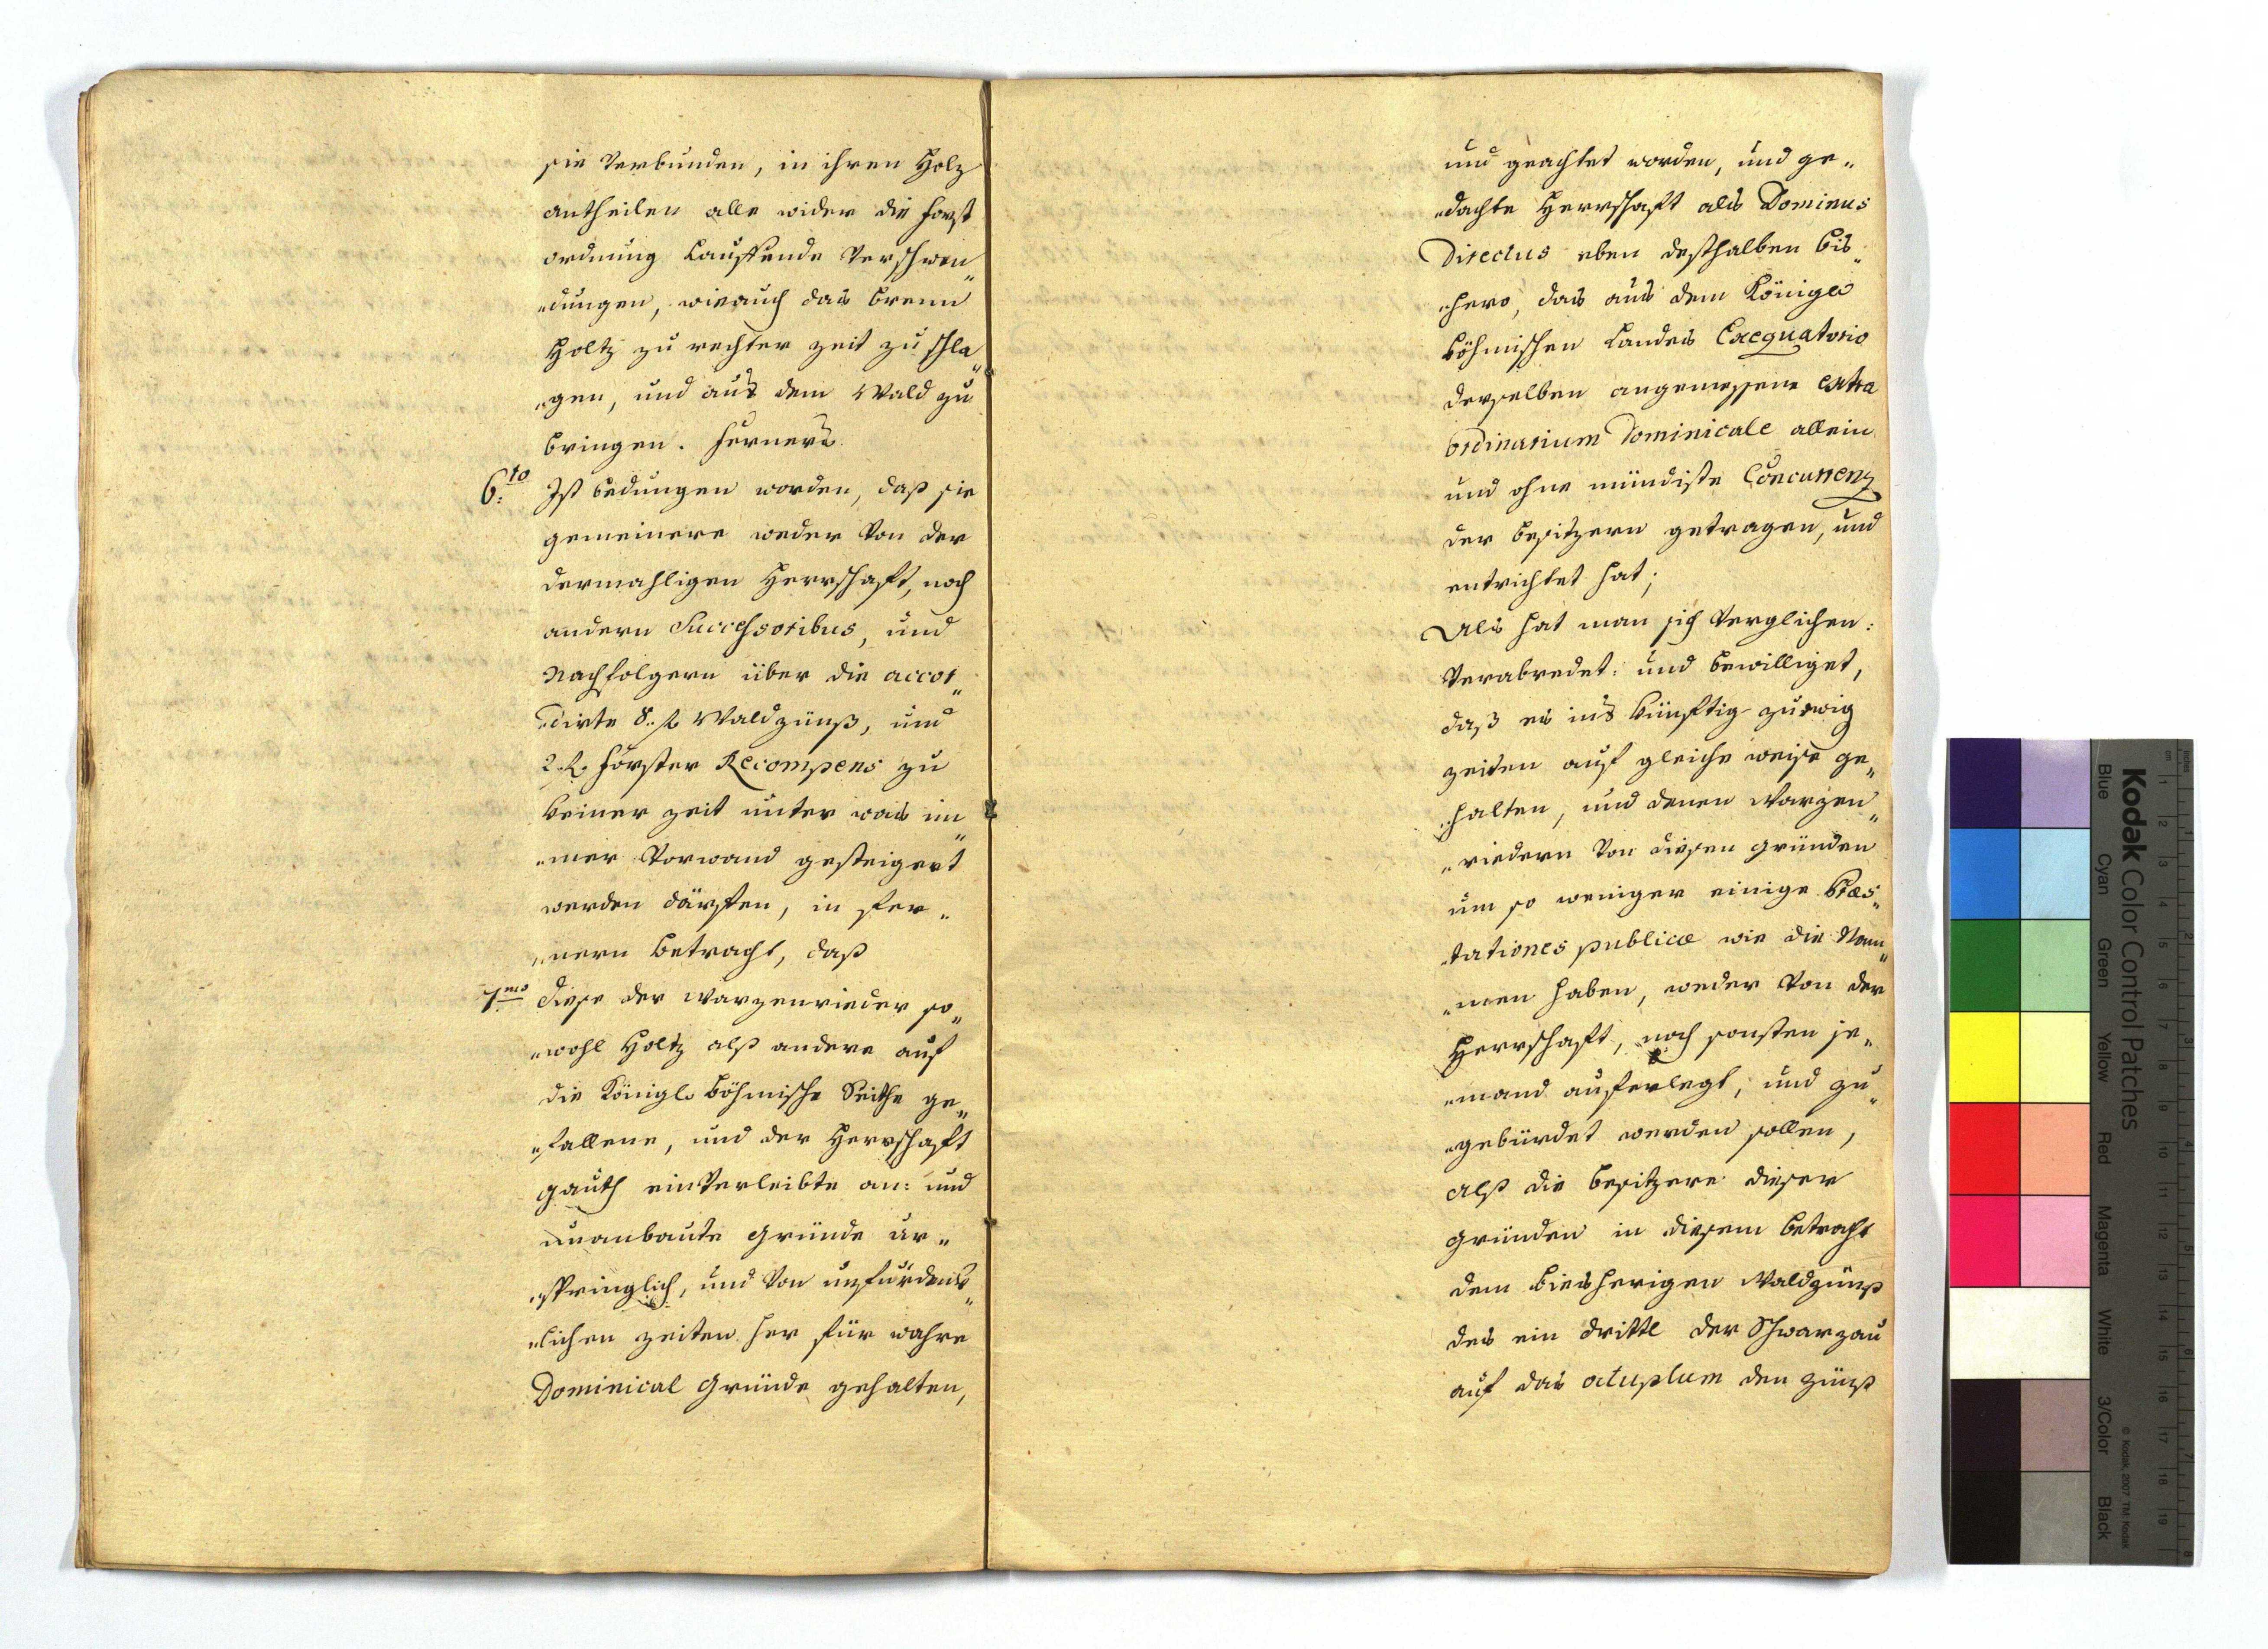 sie verbunden, in ihren Holz
antheilen alle wider die Forst
ordnung lauffende verschwen„
„dungen, wie auch das brenn
Holtz zu rechter zeit zu schla„
„gen, und aus dem Wald zu
bringen. Ferners
6:to Ist bedungen worden, daß sie
gemeinere weder von der
dermahligen Herrschaft, noch
andern Successoribus, und
Nachfolgern über die accor„
„dirte 8. f. Waldzünß, und
2. f. Förster Recompens zu
keiner zeit unter was im„
„mer vorwand gesteigert
werden därffen, in fer„
„nern betracht, daß
7.mo diese der Warzenrieder so„
„wohl Holtz alß andere auf
die Königl. Böhmische Seithe ge„
„fallene, und der Herrschaft
Gauth einverleibte an: und
unanbaute Gründe ur„
„springlich, und von unfürdenk„
„lichen zeiten her für wahre
Dominical Gründe gehalten,
und geachtet worden, und ge„
„dachte Herrschaft als Dominus
Directus eben desthalben bis„
„hero, das aus dem Königl.
Böhmischen Landes Exequatorio
derselben angemessene extra
ordinarium Dominicale allein
und ohne mündiste Concurrenz
der besitzern getragen, und
entrichtet hat;
Als hat man sich verglichen:
verabredet: und bewilliget,
daß es ins künftig zu ewig
zeiten auf gleiche weise ge„
„halten, und denen Warzen„
„riedern von diesen gründen
um so weniger einige Præs„
„tationes publicæ wie die Nam„
„men haben, weder von der
Herrschaft, noch sonsten je„
„mand auferlegt, und zu„
„gebürdet werden sollen,
alß die besitzere dieser
gründen in diesem betracht
dem bishherigen Waldzünß
des ein dritte der Schwarzau
auf das octuplum den zünß